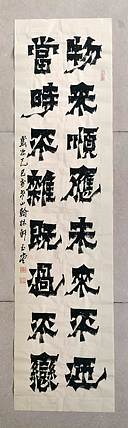 物來順應未來不迎
當時不雜既過不戀
歲次乙巳 翰林軒